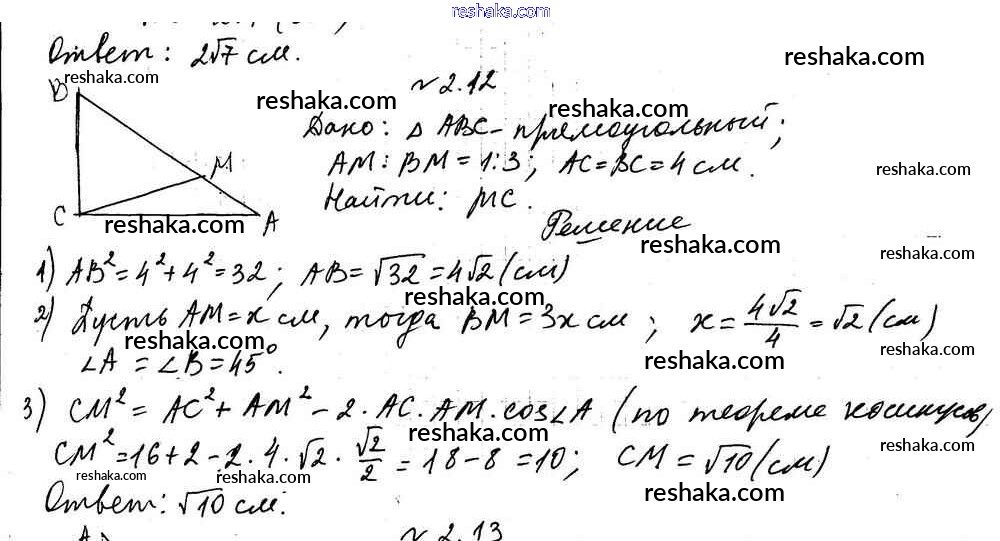 reshaka.com
Ответ: 2√7 см.
reshaka.com
reshaka.com
№ 2.12
reshaka.com
reshaka.com
Дано: △ ABC - прямоугольный;
B
M
C
A
AM : BM = 1:3; AC = BC = 4 см.
reshaka.com
Найти: MC.
reshaka.com
Решение
reshaka.com
reshaka.com
1) AB² = 4² + 4² = 32; AB = √32 = 4√2 (см)
reshaka.com
2) Пусть AM = x см, тогда BM = 3x см; x = 4√2/4 = √2 (см)
reshaka.com
reshaka.com
reshaka.com
∠A = ∠B = 45°.
3) CM² = AC² + AM² - 2 · AC · AM · cos∠A (по теореме косинусов)
reshaka.com
CM² = 16 + 2 - 2 · 4 · √2 · √2/2 = 18 - 8 = 10; CM = √10 (см)
reshaka.com
reshaka.com
reshaka.com
Ответ: √10 см.
№ 2.13